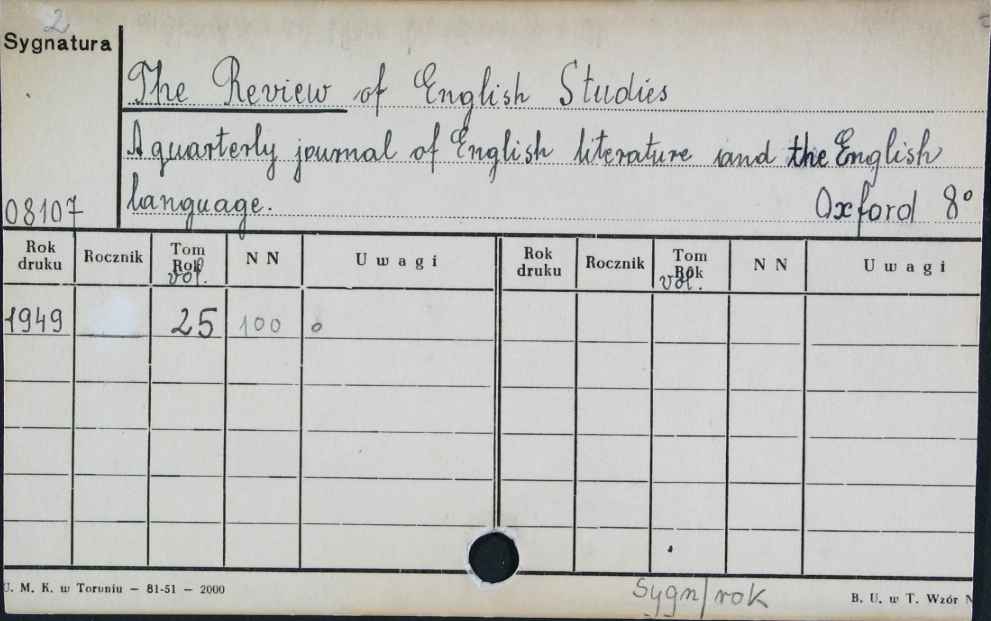 2
Sygnatura
The Review of English Studies
A quarterly journal of English literature and the English
08107 language. Oxford 8°
Rok druku Rocznik Tom Rok vol. N N Uwagi Rok druku Rocznik Tom Rok vol. N N Uwagi
1949 25 100 o
U. M. K. w Toruniu — 81-51 — 2000
Sygn/rok
B. U. w T. Wzór N